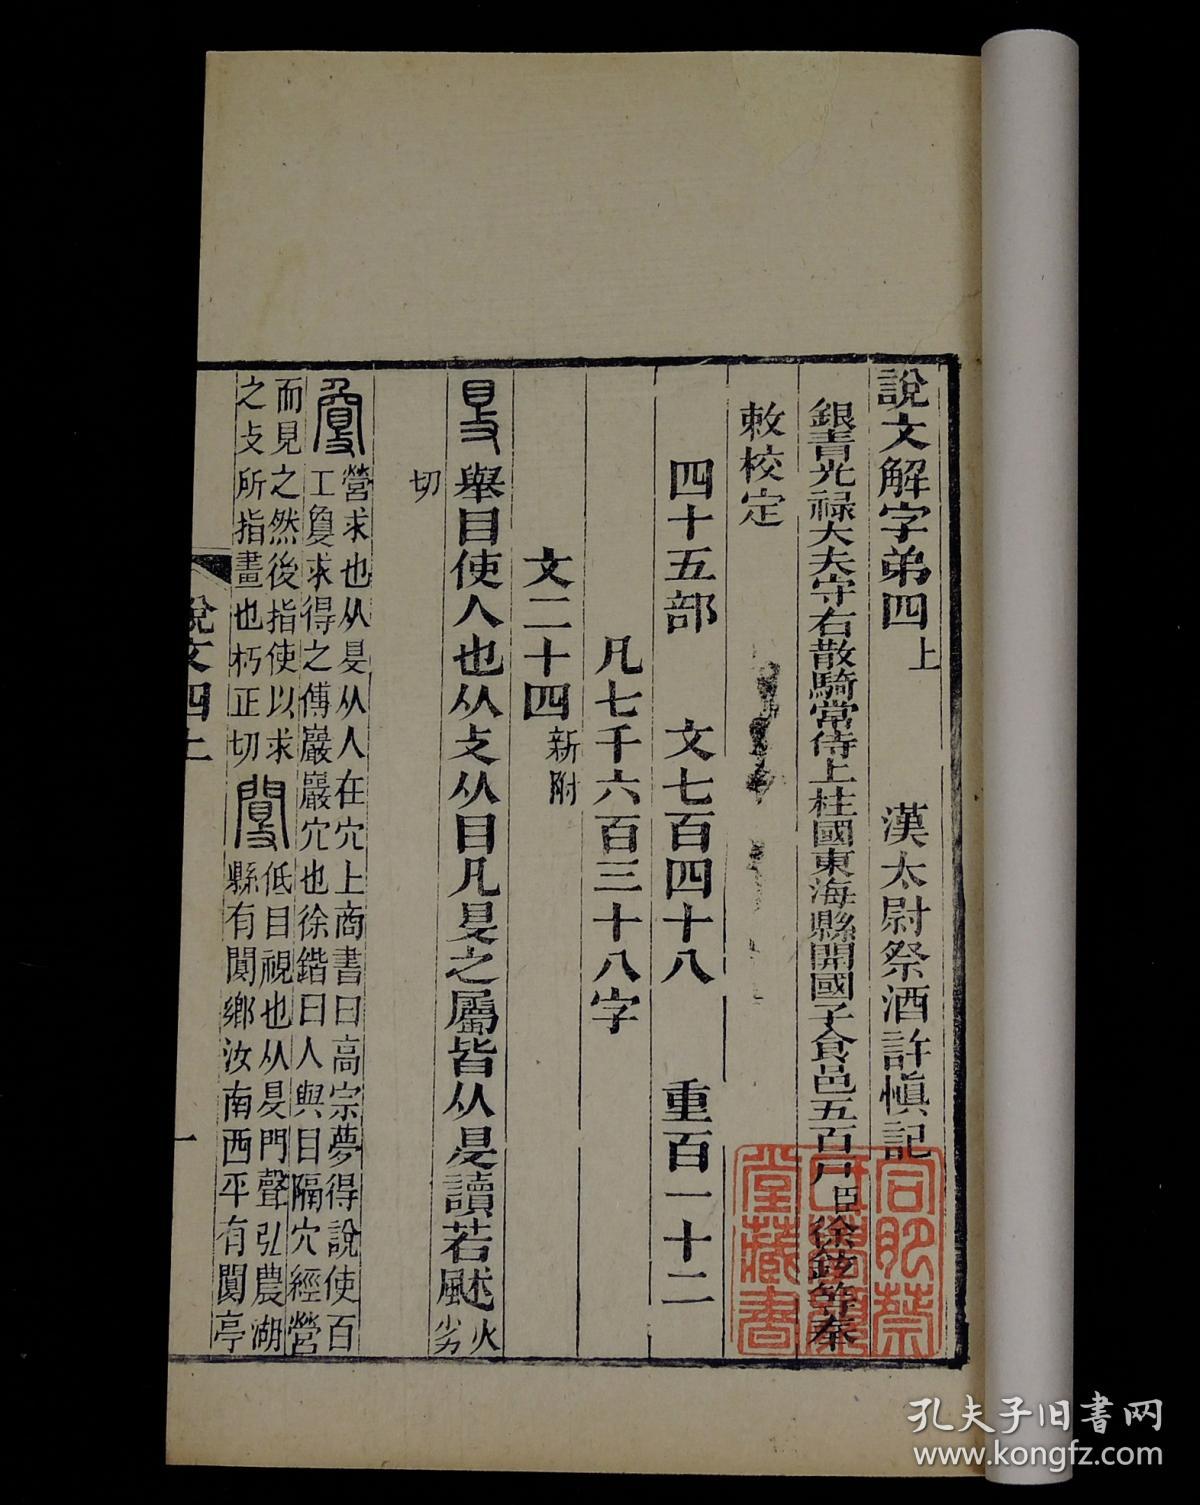 說文解字弟四上 漢太尉祭酒許慎記
銀青光祿大夫守右散騎常侍上柱國東海縣開國子食邑五百戶臣徐鉉等奉
敕校定
四十五部 文七百四十八 重百一十二
凡七千六百三十八字
文二十四新附
舉目使人也从攴从目凡𥄎之屬皆从𥄎讀若颰火劣
切
營求也从𥄎从人在穴上商書曰高宗夢得說使百
工敻求得之傅巖巖穴也徐鍇曰人與目隔穴經營
而見之然後指使以求
之攴所指畫也朽正切
低目視也从𥄎門聲弘農湖
縣有閿鄉汝南西平有閿亭
說文四上
一
合肥蒯
堂藏書
孔夫子旧書网
www.kongfz.com